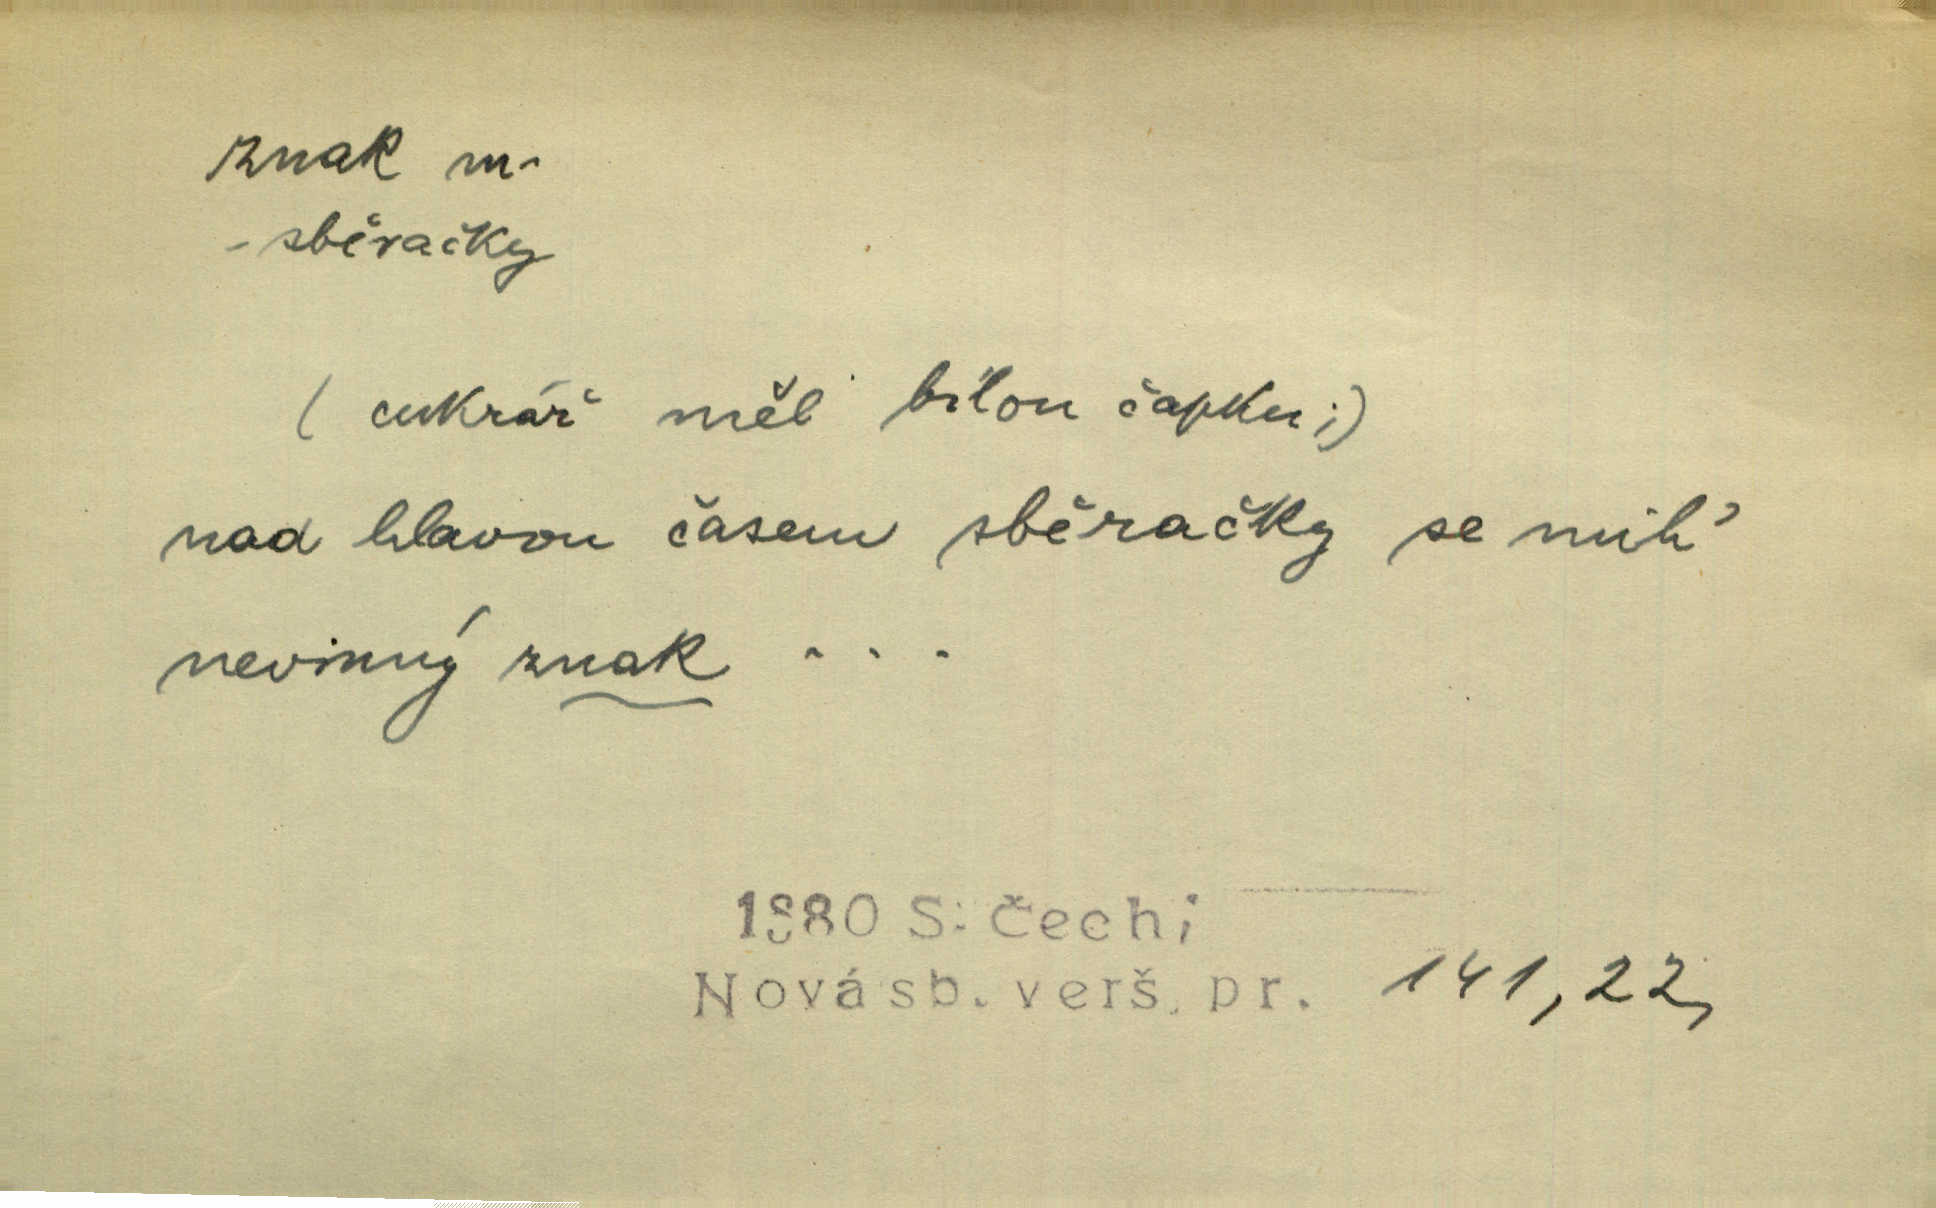 znak m.
- sběračky
( cukrář měl bílou čapku ;)
nad hlavou časem sběračky se mih'
nevinný znak . . .
1880 S. Čech;
Nová sb. verš. pr. 141, 22,